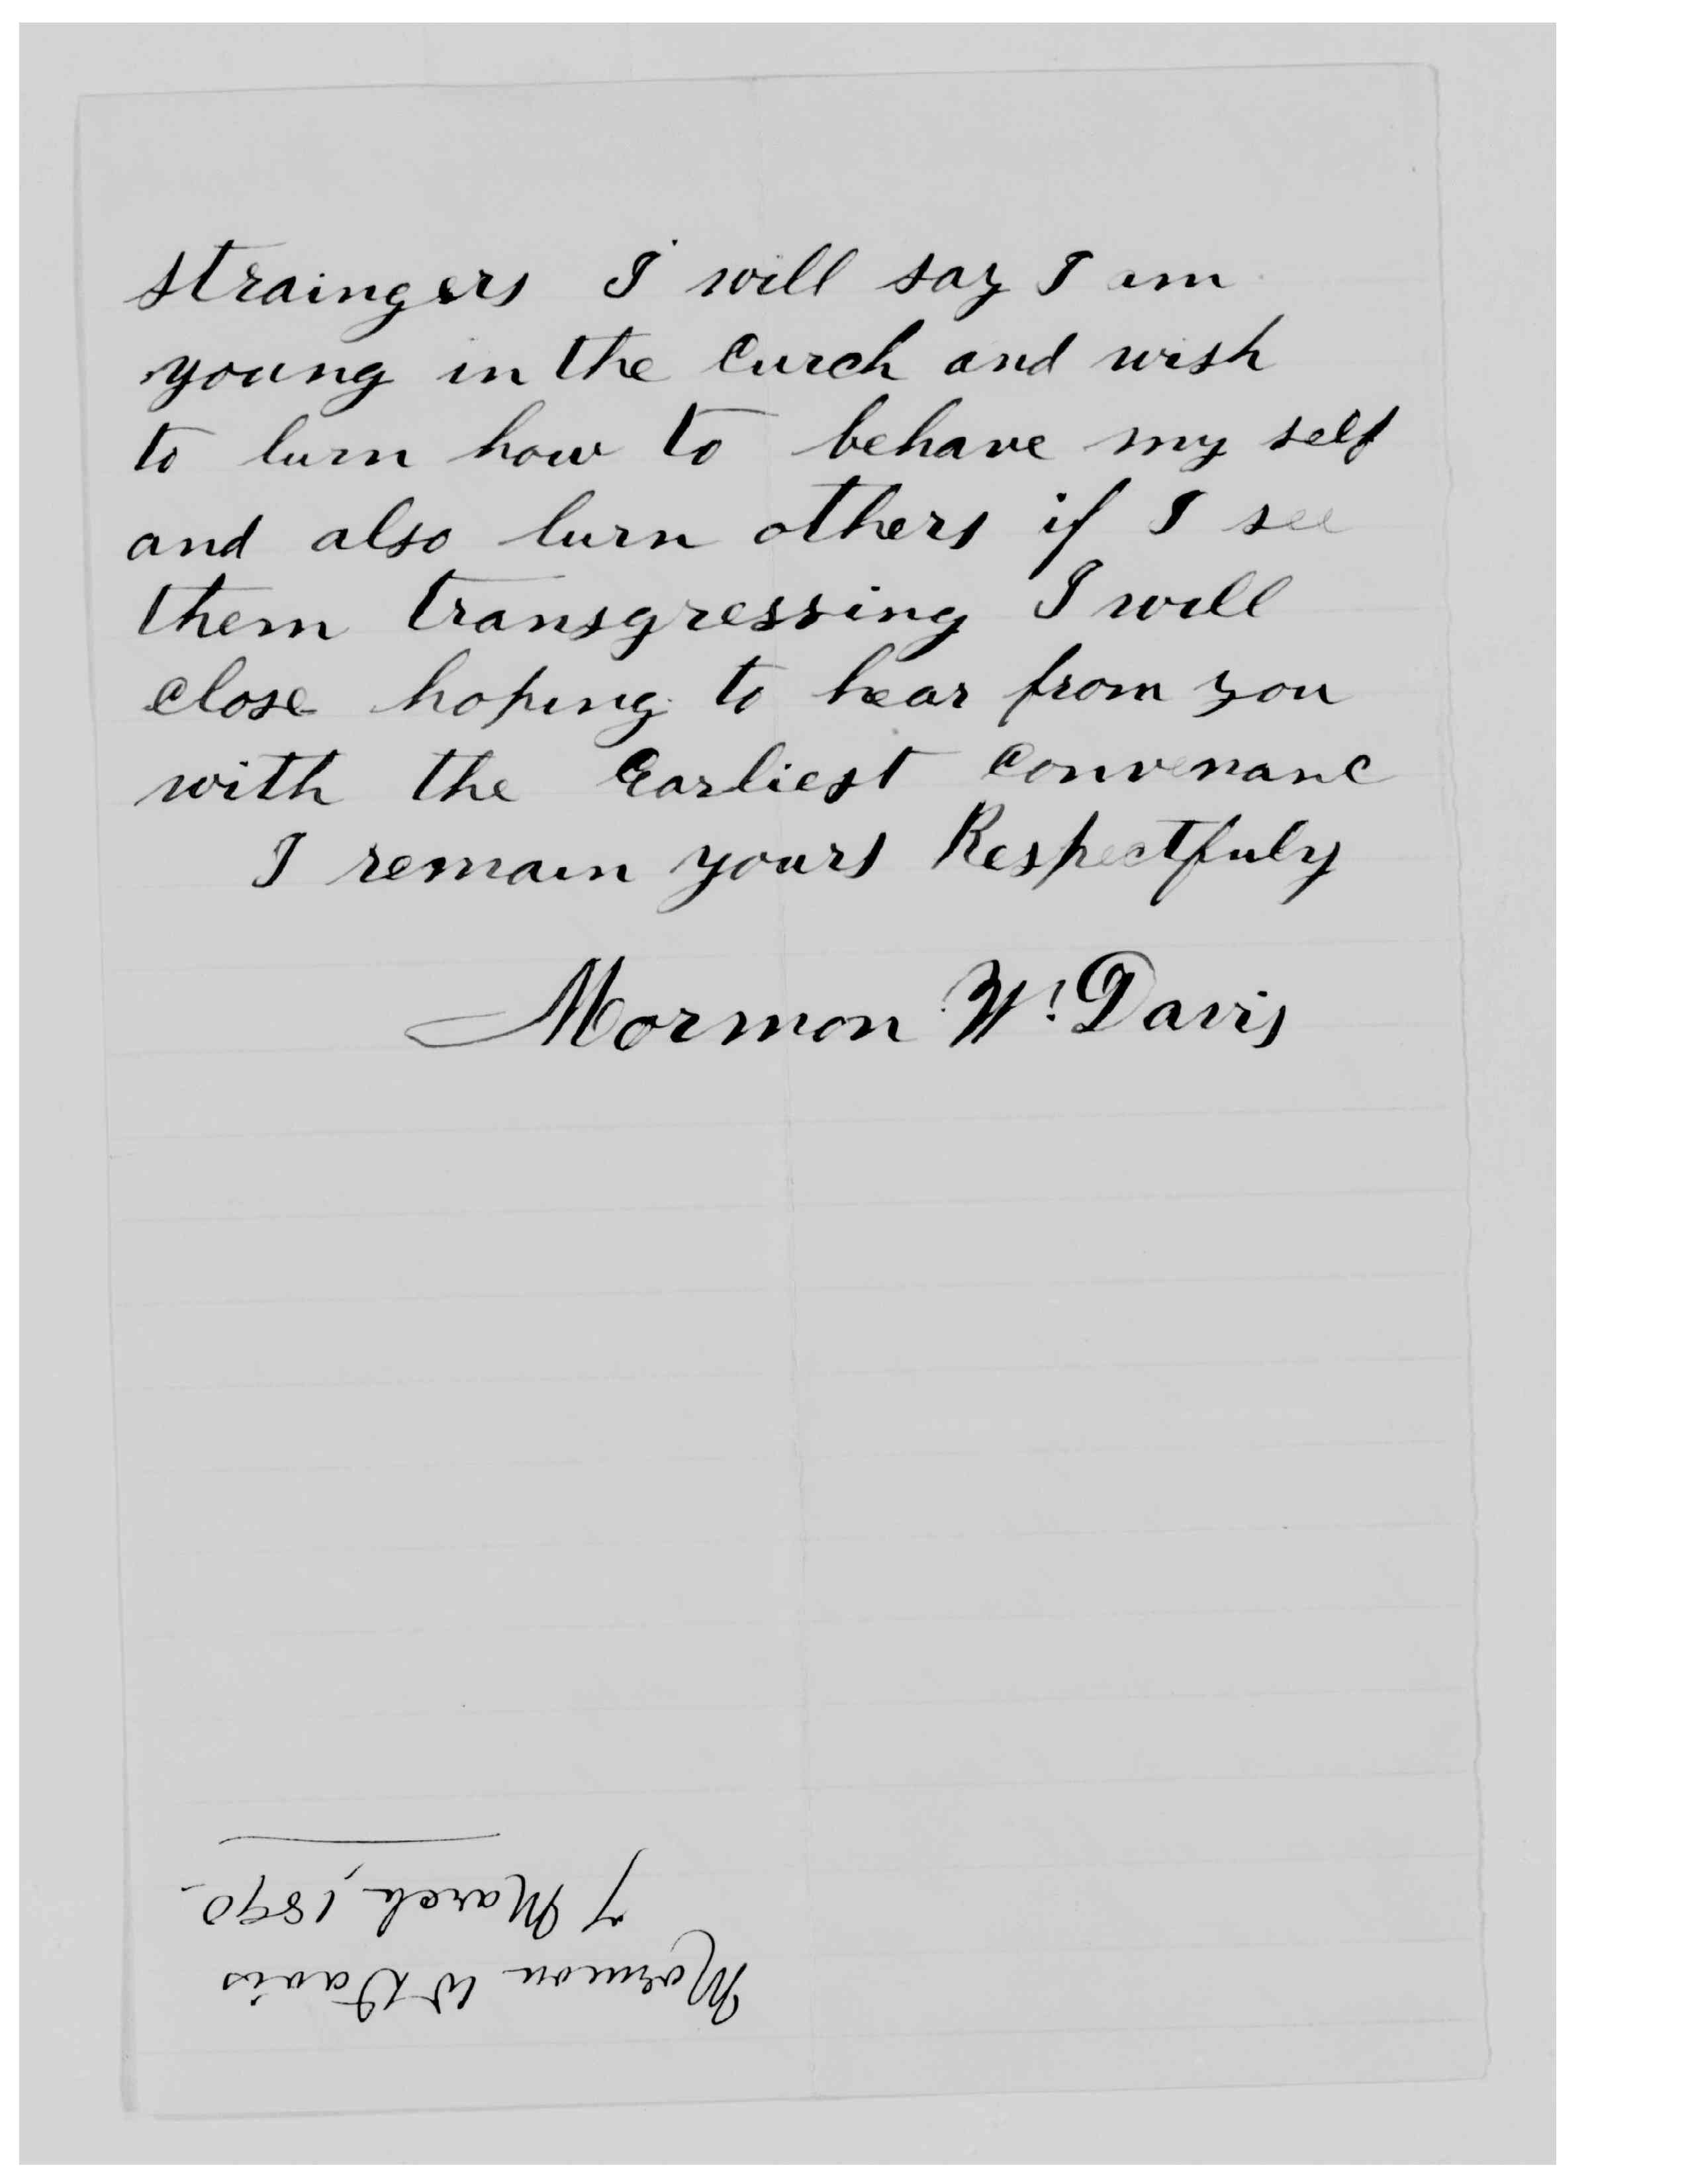 straingers I will say I am
young in the Curch and wish
to lurn how to behave my self
and also lurn others if I see
them transgressing I will
close hoping to hear from you
with the Earliest Convenanc
I remain yours Respectfuly
Mormon W. Davis
Mormon W Davis
7 March, 1890.